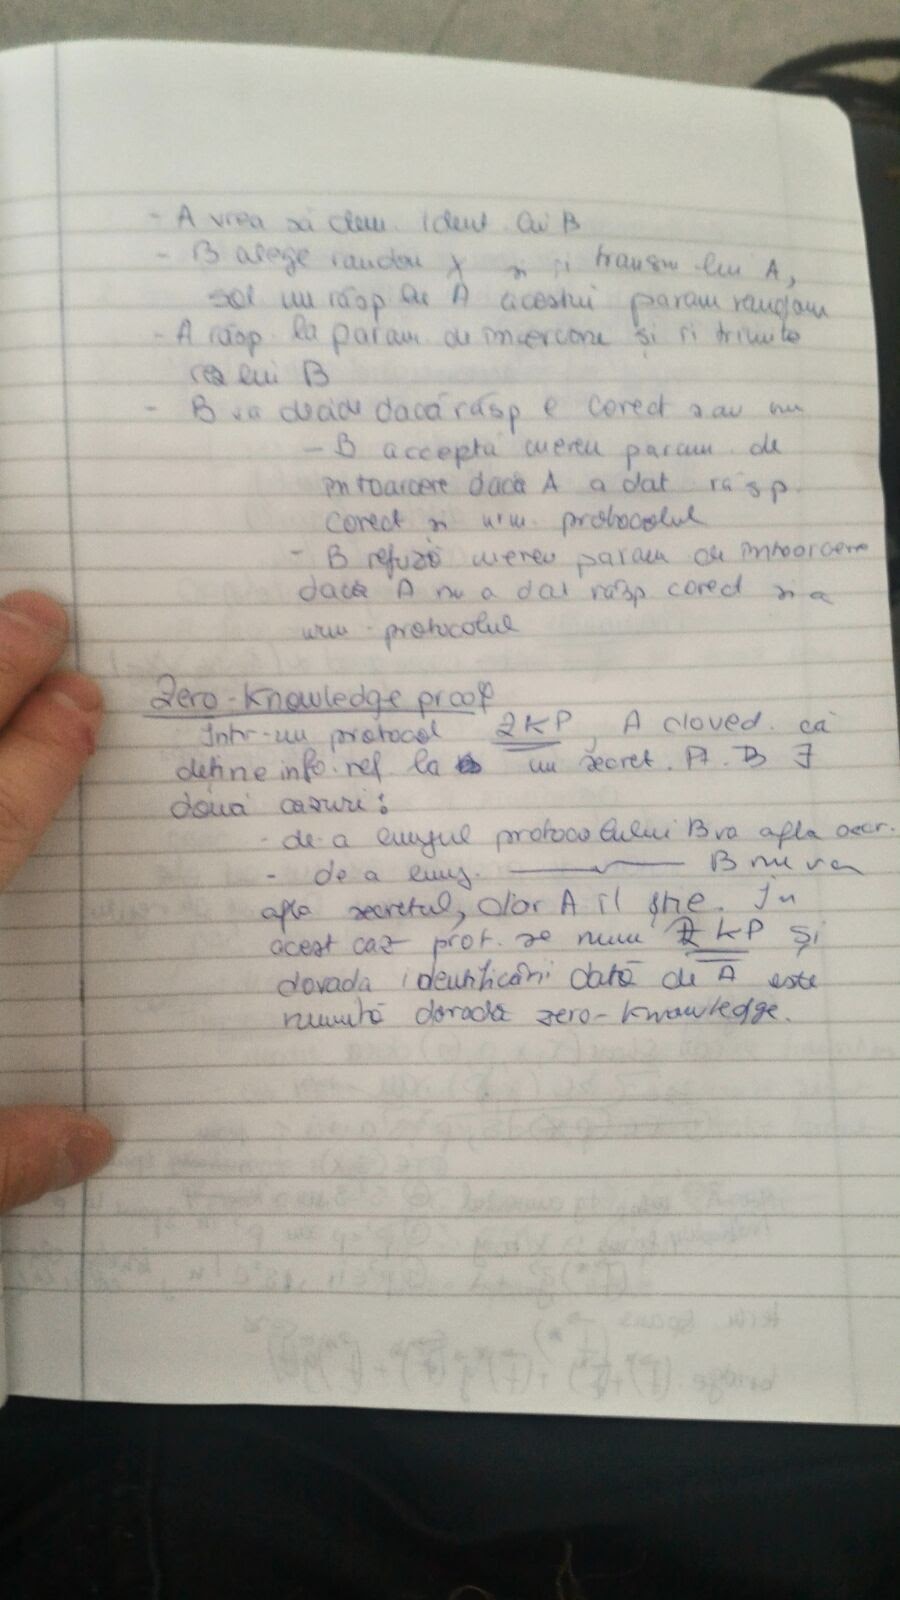 - A vrea să dem. ident. lui B
- B alege random x și îi transm lui A,
sol un răsp de A acestui param random
- A răsp. la param de întoarcere și îi trimite
rez lui B
- B va decide dacă răsp e corect sau nu
- B acceptă mereu param. de
întoarcere dacă A a dat răsp.
corect și urm. protocolul
- B refuză mereu param de întoarcere
dacă A nu a dat răsp corect și a
urm. protocolul
Zero-Knowledge proof
Într-un protocol ZKP, A doved. că
deține info. ref. la un secret. Pt. B ∃
două cazuri:
- de-a lungul protocolului B va afla secr.
- de a lung. —〃— B nu va
afla secretul, doar A îl știe. În
acest caz prot. se num ZKP și
dovada identificării dată de A este
numită dovadă zero-knowledge.